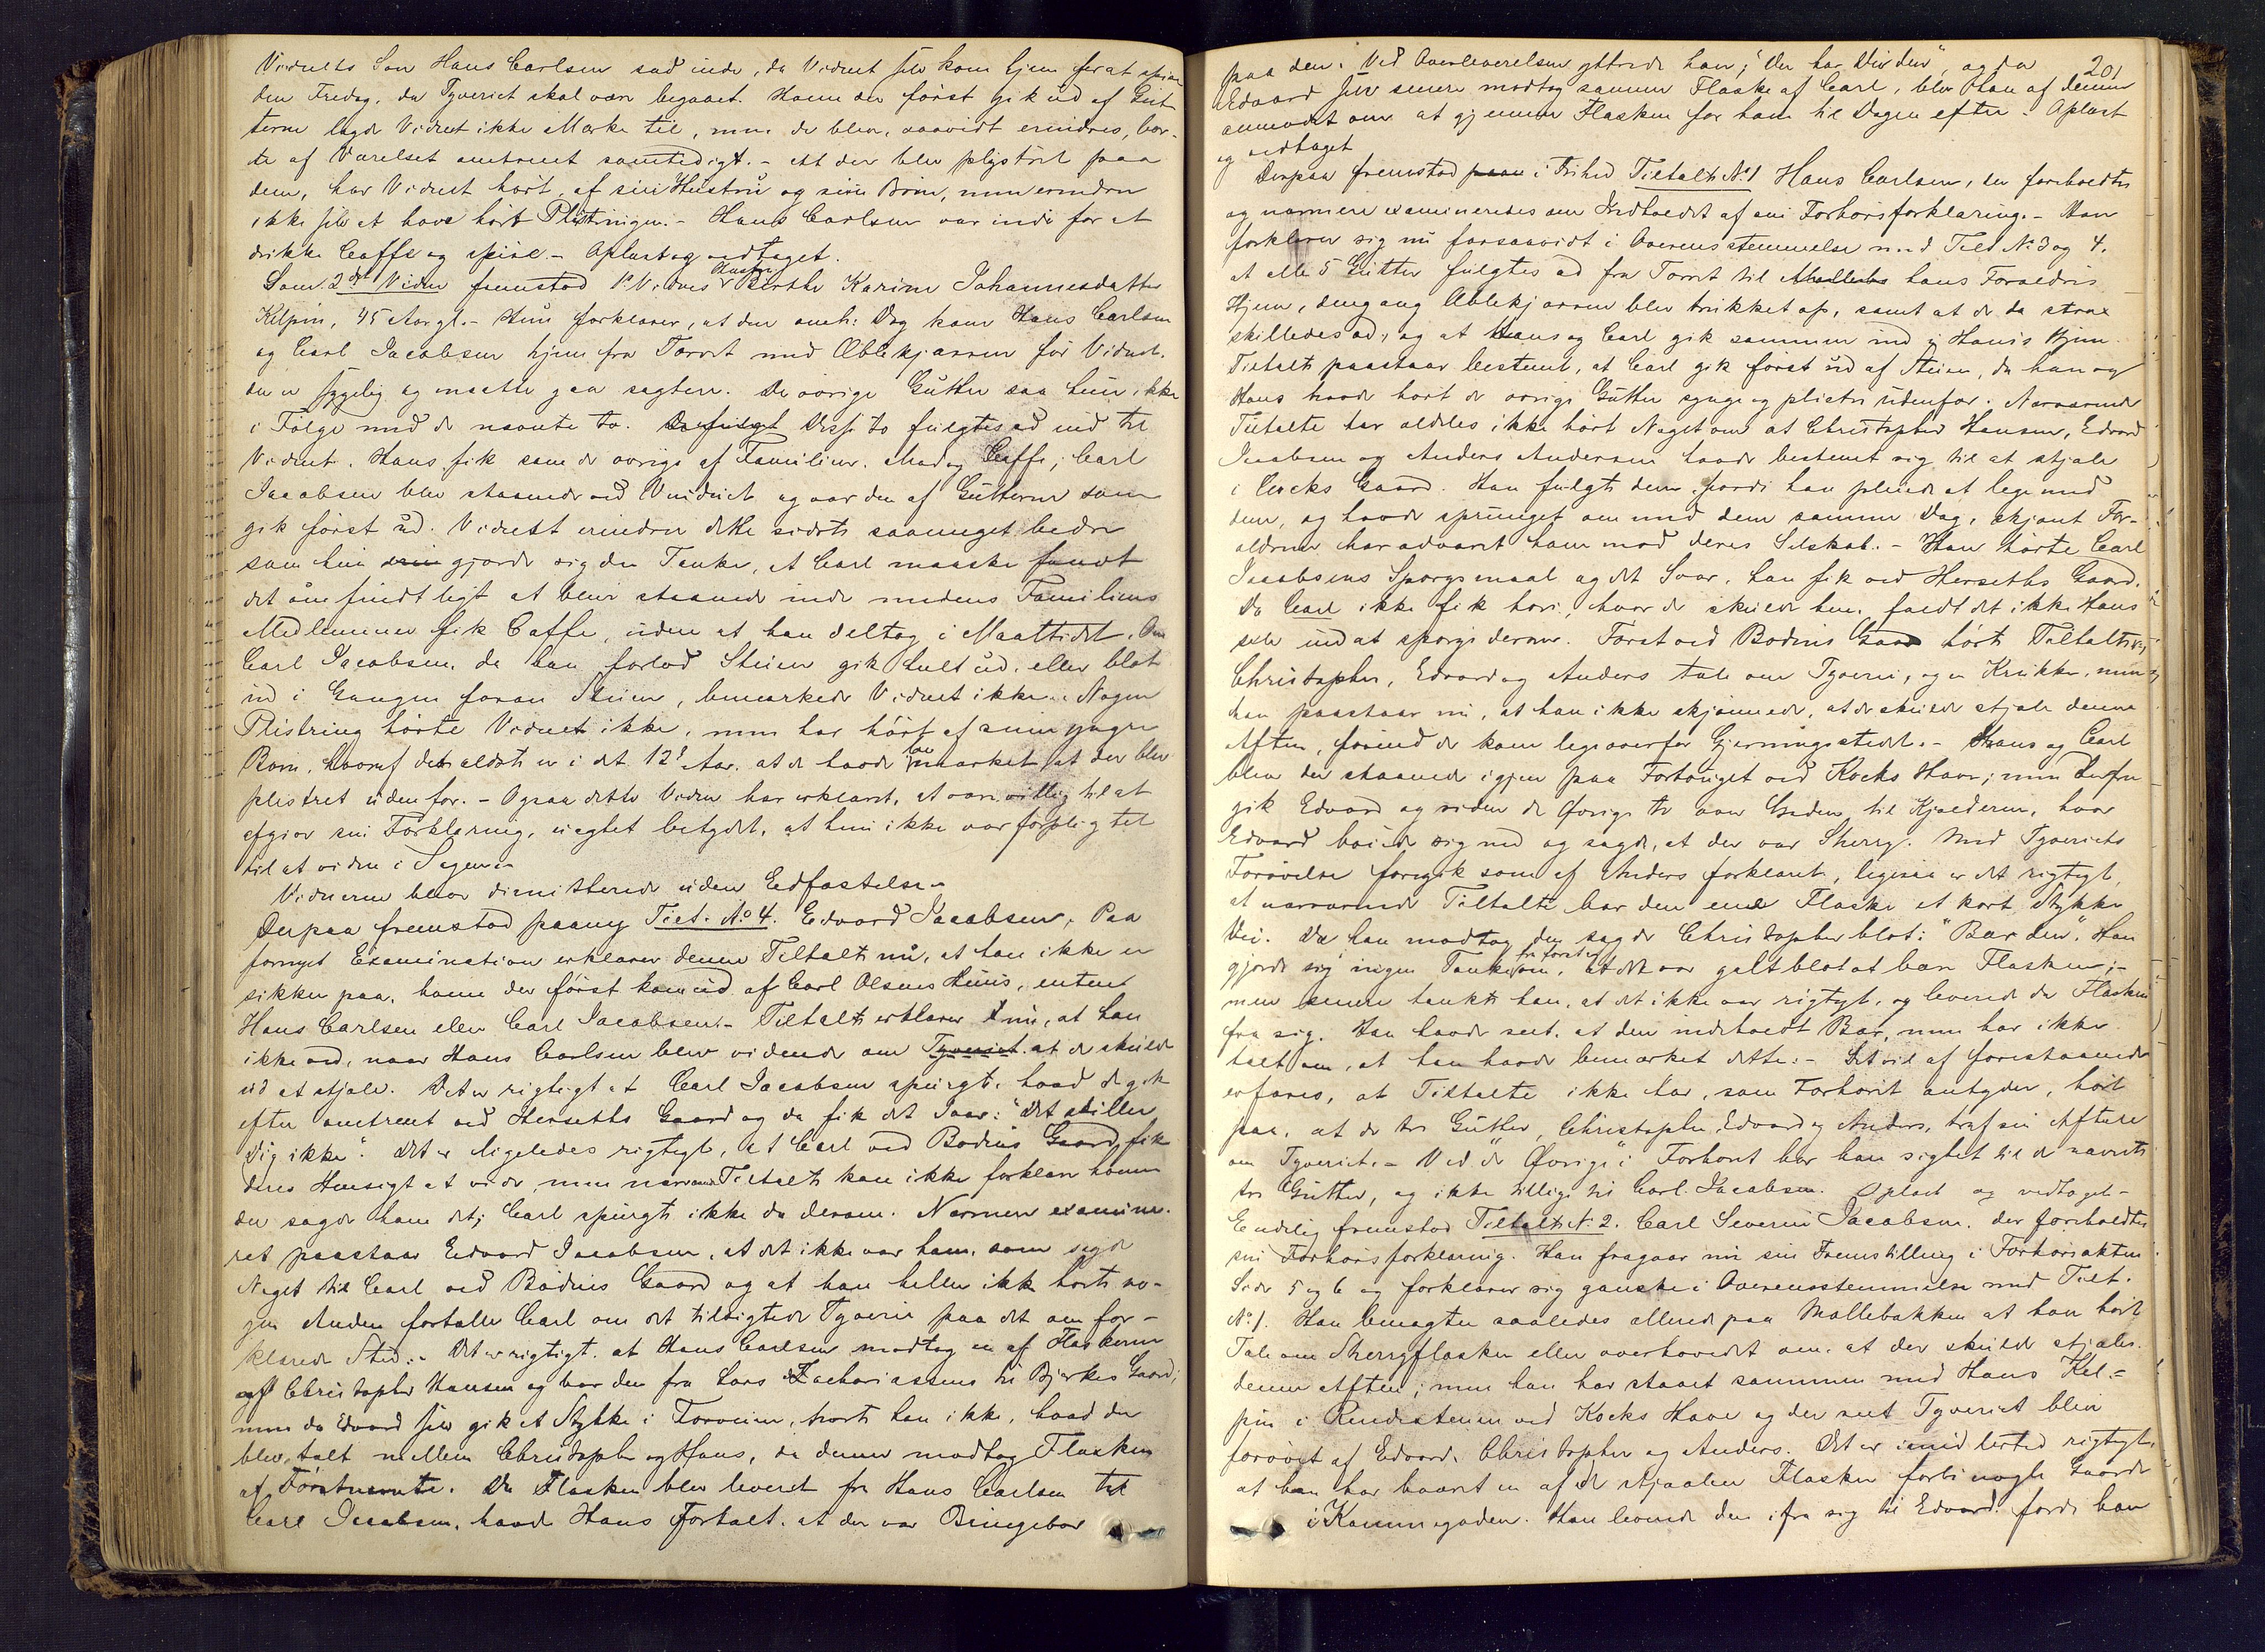 Vidnets Søn Hans Carlsen sad inde, da Vidnet selv kom hjem for at spise
den Fredag, da Tyveriet skal være begaaet. Hvem der først gik ud af Gut-
terne lagde Vidnet ikke Mærke til, men de blev, saavidt erindres, bor-
te af Værelset omtrent samtidigt. - At der blev plystret paa
dem, har Vidnet hørt af sin Hustru og sine Børn, men erindrer
ikke selv at have hørt Plistringen. - Hans Carlsen var inde for at
drikke Caffe og spise. - Oplæst og vedtaget.
Som 2det Vidne fremstod 1ste Vidnes Hustru Berthe Karine Johannesdatter
Kilpin, 45 Aar gl. - Hun forklarer, at den omh. Dag kom Hans Carlsen
og Carl Jacobsen hjem fra Torvet med Æblekjærren før Vidnet,
der er sygelig og maatte gaa sagtere. De øvrige Gutter saa hun ikke
i Følge med de nævnte to. De fulgt Disse to fulgtes ad ind til
Vidnet. Hans fik som de øvrige af Familien Mad og Caffe; Carl
Jacobsen blev staaende ved Vinduet og var den af Gutterne som
gik først ud. Vidnet erindrer dette sidste saameget bedre
som hun gjorde sig den Tanke, at Carl maaske fandt
det ømfindtligt at blive staaende inde medens Familiens
Medlemmer fik Caffe, uden at han deltog i Maaltidet. Om
Carl Jacobsen, da han forlod Stuen gik helt ud, eller blot
ud i Gangen foran Stuen, bemærkede Vidnet ikke. Nogen
Plistring hørte Vidnet ikke, men har hørt af sine yngre
Børn, hvoraf det ældste er i det 12te Aar, at de havde bemærket at der blev
plistret udenfor. - Ogsaa dette Vidne har erklæret, at være villig til at
afgive sin Forklaring, uagtet betydet, at hun ikke var forpligtet
til at vidne i Sagen. -
Vidnerne blev dimitterede uden Eedfæstelse. -
Derpaa fremstod paany Tilt. No 4. Edvard Jacobsen. Paa
fornyet Examination erklærer denne Tiltalte nu, at han ikke er
sikker paa, hvem der først kom ud af Carl Olsens Huus, enten
Hans Carlsen eller Carl Jacobsen. - Tiltalte erklærer nu, at han
ikke ved, naar Hans Carlsen blev vidende om Tyveriet at de skulde
ud at stjæle. Det er rigtigt at Carl Jacobsen spurgte, hvad de gik
efter omtrent ved Herseths Gaard og da fik det Svar: "Det skiller
Dig ikke". Det er ligeledes rigtigt, at Carl ved Bødins Gaard fik
deres Hensigt at vide, men nærværende Tiltalte kan ikke forklare hvem
der sagde ham det; Carl spurgte ikke da derom. Nærmere examine-
ret paastaar Edvard Jacobsen, at det ikke var ham, som sagde
Noget til Carl ved Bødins Gaard og at han heller ikke hørte no-
gen Anden fortælle Carl om det tilsigtede Tyveri paa det omfor-
klarede Sted. - Det er rigtigt, at Hans Carlsen modtog en af Flaskerne
af Christopher Hansen og bar den fra Lars Zachariassens til Bjerkes Gaard;
men da Edvard selv gik et Stykke i Forveien, hørte han ikke, hvad der
blev talt mellem Christopher og Hans, da denne modtog Flasken
af Førstnævnte. Da Flasken blev leveret fra Hans Carlsen til
Carl Jacobsen, havde Hans fortalt, at der var Bringebær
201
paa den. Ved Overleverelsen yttrede han; "Der har Du den", og da
Edvard selv senere modtog samme Flaske af Carl, blev han af denne
anmodet om at gjemme Flasken for ham til Dagen efter. Oplæst
og vedtaget
Derpaa fremstod i Frihed Tiltalte No 1 Hans Carlsen, der foreholdtes
og nærmere examineredes om Indholdet af sin Forhørsforklaring. - Han
forklarer sig nu forsaavidt i Overensstemmelse med Tilt. No 3 og 4.
at alle 5 Gutter fulgtes ad fra Torvet til hans Forældres
Hjem, dengang Æblekjærren blev trukket op, samt at de da strax
skilledes ad, og at Hans og Carl gik sammen ind i Hans's Hjem.
Tiltalte paastaar bestemt, at Carl gik først ud af Stuen, da han og
Hans havde hørt de øvrige Gutter synge og plistre udenfor. Nærværende
Tiltalte har aldeles ikke hørt Noget om at Christopher Hansen, Edvard
Jacobsen og Anders Andersen havde bestemt sig til at stjæle
i Kocks Gaard. Han fulgte dem fordi han pleiede at lege med
dem, og havde sprunget om med dem samme Dag, skjønt For-
ældrene har advaret ham mod deres Selskab. - Han hørte Carl
Jacobsens Spørgsmaal og det Svar, han fik ved Herseths Gaard.
Da Carl ikke fik høre, hvor de skulde hen, faldt det ikke Hans
selv ind at spørge derom. Først ved Bødins Gaard hørte Tiltalte
Christopher, Edvard og Anders tale om Tyveri, og en Krukke, men
han paastaar nu, at han ikke skjønnede, at de skulde stjæle denne
Aften, førend de kom ligeoverfor Gjerningsstedet. - Hans og Carl
blev der staaende igjen paa Fortouget ved Kocks Have; men derfra
gik Edvard og siden de Øvrige to over Gaden til Kjælderen, hvor
Edvard bøiede sig ned og sagde, at der var Sherry. Med Tyveriets
Forøvelse foregik som af Anders forklaret, ligesaa er det rigtigt,
at nærværende Tiltalte bar den ene Flaske et kort Stykke
Vei. Da han modtog den sagde Christopher blot: "Bær den". Han
gjorde sig ingen Tanke om, at det var galt blot at bære Flasken; -
men senere tænkte han, at det ikke var rigtigt, og leverede da Flasken
fra sig. Han havde seet, at den indeholdt Bær, men har ikke
talt om, at han havde bemærket dette. - Det vil af forestaaende
erfares, at Tiltalte ikke har, som Forhøret antyder, hørt
paa, at de tre Gutter, Christopher, Edvard og Anders, traf sin Aftale
om Tyveriet. - Ved "de Øvrige" i Forhøret har han sigtet til de nævnte
tre Gutter, og ikke tillige til Carl Jacobsen. Oplæst og vedtaget -
Endelig fremstod Tiltalte No 2. Carl Severin Jacobsen, der foreholdtes
sin Forhørsforklaring. Han fragaar nu sin Fremstilling i Forhørsakten
Side 5 og 6 og forklarer sig ganske i Overensstemmelse med Tilt.
No 1. Han benægter saaledes allerede paa Møllebakken at have hørt
Tale om Sherryflasker eller overhovedet om, at der skulde stjæles
denne Aften; men han har staaet sammen med Hans Kil-
pin i Rendestenen ved Kocks Have og der seet Tyveriet blive
forøvet af Edvard, Christopher og Anders. Det er imidlertid rigtigt,
at han har baaret en af de stjaalne Flasker forbi nogle Gaarde
i Kammegaden. Han leverede den ifra sig til Edvard fordi han